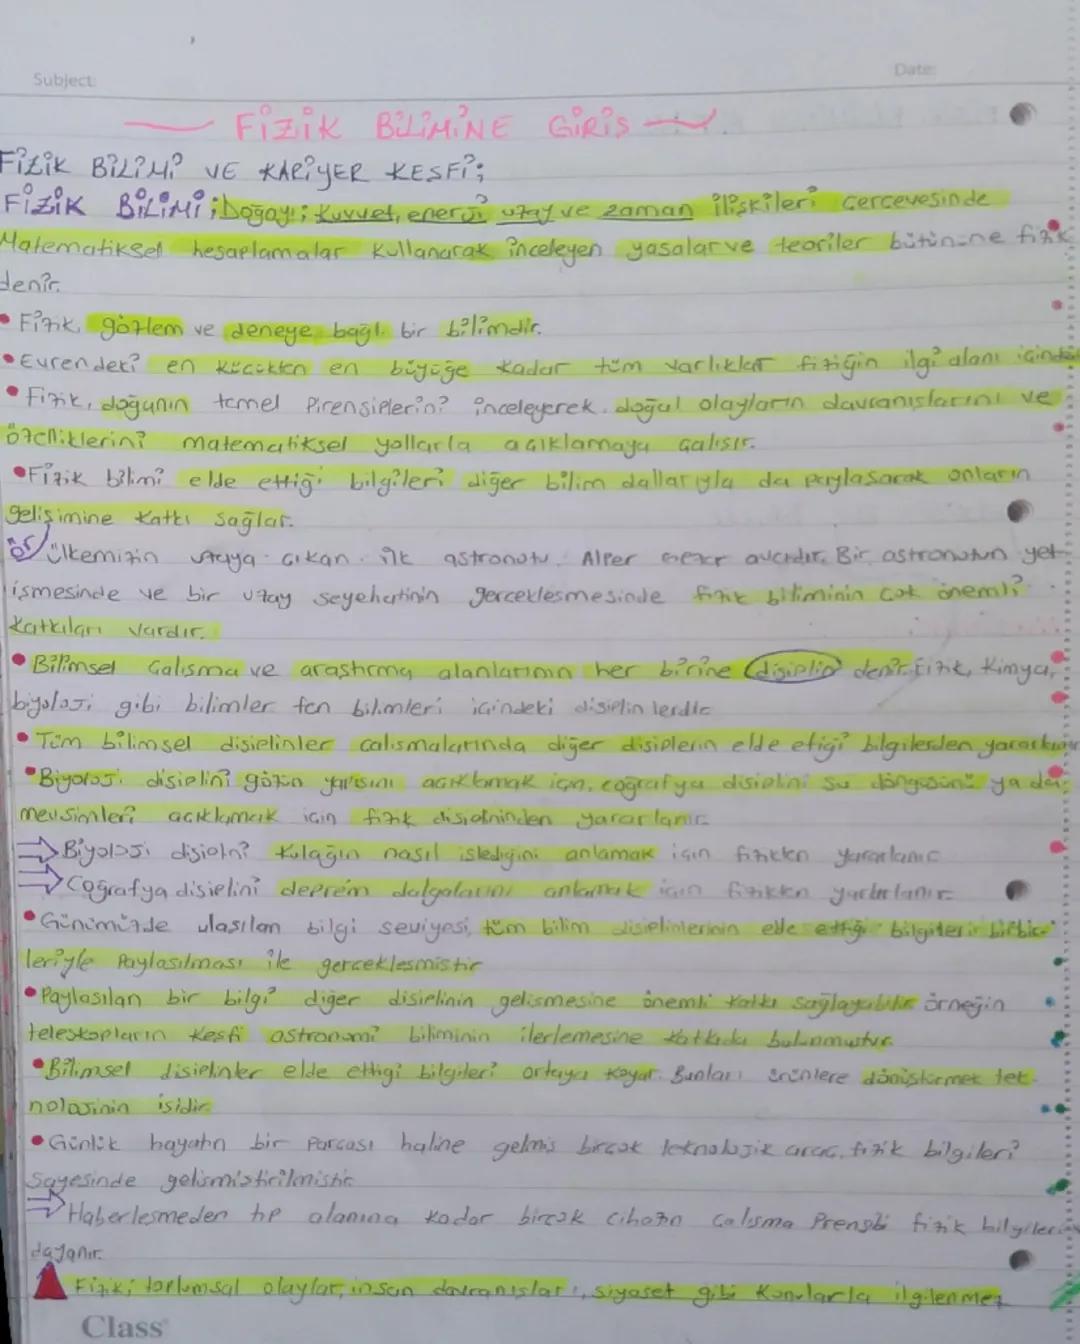 Subject:
Date:
FİZİK BİLİMİNE GİRİS
FİZİK BİLİMİ VE KARİYER KESFİ;
FİZİK BİLİMİ; Doğayı; kuvvet, enerji uzay ve zaman ilişkileri cercevesinde
Matematiksel hesaplamalar kullanarak inceleyen yasalar ve teoriler bütününe fizik
denir.
• Fizik, gözlem ve deneye bağlı bir bilimdir.
• Evrendeki en kücükten en büyüğe kadar tüm varlıklar fiziğin ilgi alanı icindedir
• Fizik, doğanın temel Pirensiplerini inceleyerek, doğal olayların davranıslarını ve
özelliklerini matematiksel yollarla acıklamaya calısır.
• Fizik bilimi elde ettiği bilgileri diğer bilim dallarıyla da paylasarak onların
gelişimine katkı sağlar.
ör/ ülkemizin uzaya cıkan ilk astronotu Alper avcıdır. Bir astronotun yet-
ismesinde ve bir uzay seyehatinin gerceklesmesinde fizik biliminin cok önemli
katkıları vardır.
• Bilimsel Calısma ve arastırma alanlarının her birine disiplin denir. Fizik, kimya,
biyoloji gibi bilimler fen bilimleri icindeki disiplinlerdir
• Tüm bilimsel disiplinler calısmalarında diğer disiplerin elde etiği bilgilerden yararlanır
• Biyoloji disiplini gözün yapısını acıklamak için, coğrafya disiplini su döngüsünü ya da
mevsimleri acıklamak icin fizik disiplninden yararlanır
⇒ Biyoloji disiplni kulağın nasıl islediğini anlamak için fizikten yararlanır
⇒ Coğrafya disiplini deprem dalgalarını anlamak icin fizikten yararlanır
• Günümüzde ulasılan bilgi seviyesi, tüm bilim disiplinlerinin elde ettiği bilgileri birbir-
leriyle Paylasılması ile gerceklesmistir
• Paylasılan bir bilgi diğer disiplinin gelismesine önemli katkı sağlayabilir örneğin
teleskopların kesfi astronomi biliminin ilerlemesine katkıda bulunmustur.
• Bilimsel disiplinler elde ettigi bilgileri ortaya koyar. Bunları ürünlere dönüştürmek tek-
nolojinin isidir.
• Günlük hayatın bir Parcası haline gelmis bircok teknolojik arac, fizik bilgileri
sayesinde gelismistirilmistir
⇒ Haberlesmeden tıp alanına kadar bircok cihazın calısma Prensibi fizik bilgilerine
dayanır.
Fizik; toplumsal olaylar, insan davranısları, siyaset gibi konularla ilgilenmez
Class